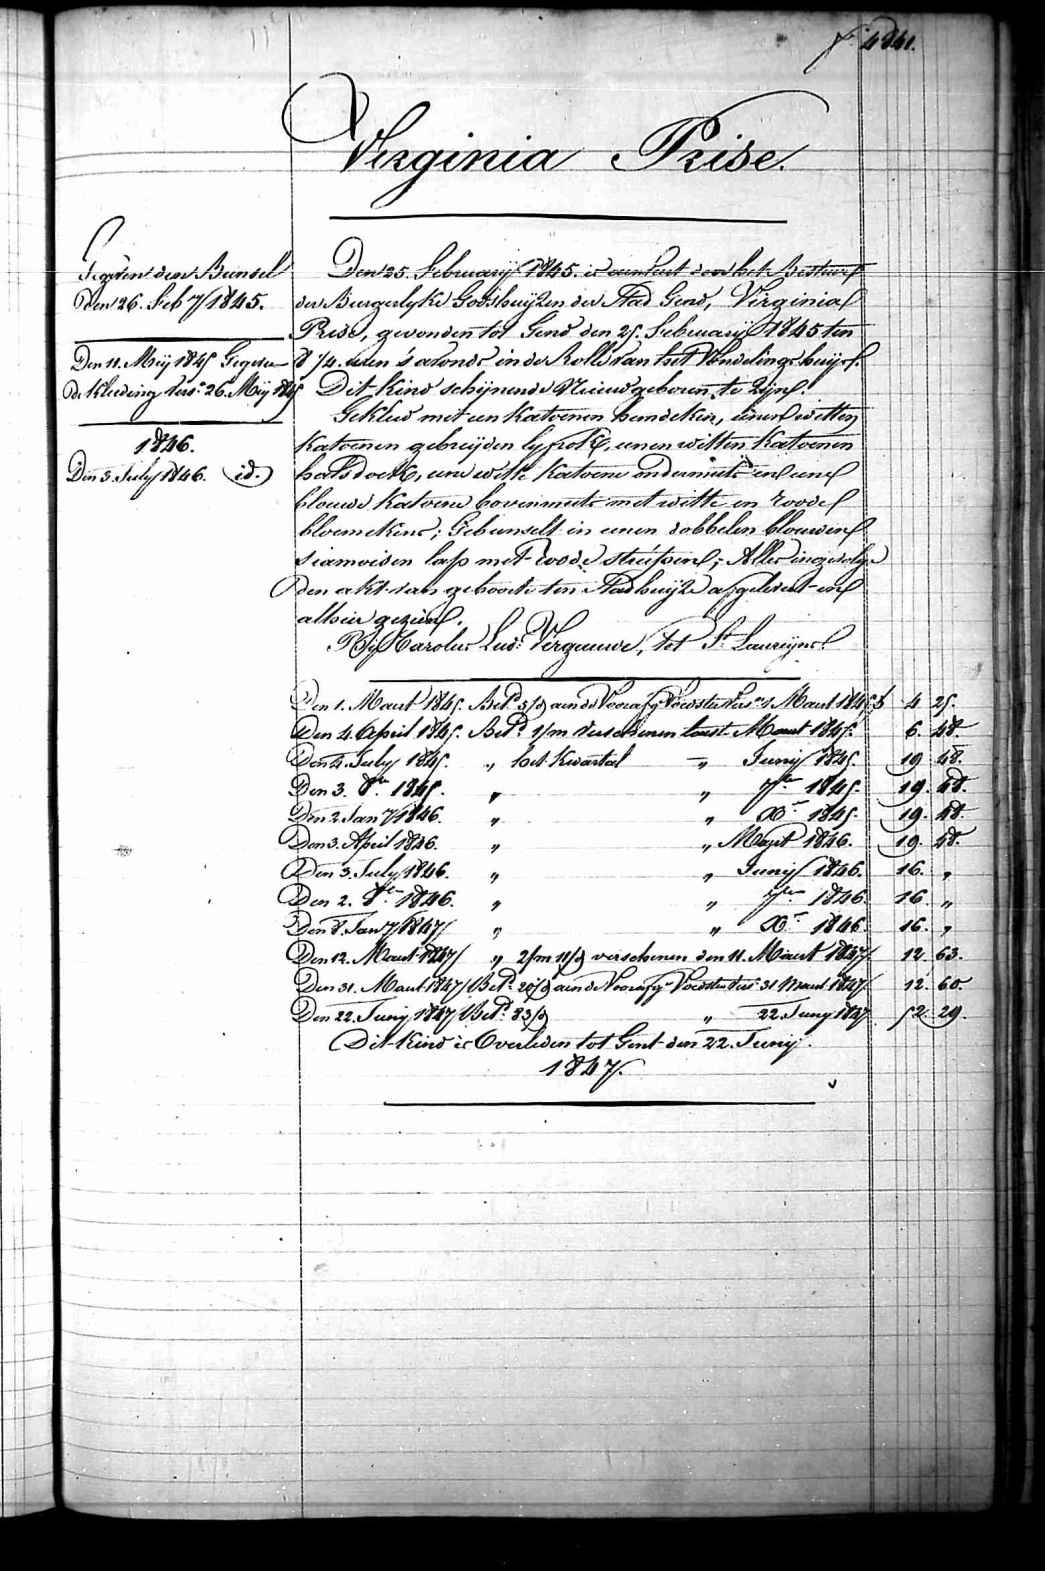 f. 4841.
Virginia Prise.
Gegeven den Bunsel
den 26. Feb.y 1845.
Den 11. Meij 1845 Gegeven
de Kleeding vers. 26. Meij 1845
1846.
Den 3. July 1846. id.
Den 25. Februarij 1845. is aenveert door het Bestuur
der Burgerlyke Godshuyzen der Stad Gend, Virginia
Prise, gevonden tot Gend den 25. Februarij 1845 ten
8 1/4. uren s'avonds in de Rolle van het Vondelingshuijs.
Dit Kind schijnende Nieuwgeboren te Zijn.
Gekleed met een Katoenen hemdeken, eenen witten
Katoenen gebreijden lyfrok, eenen witten Katoenen
halsdoek, eene witte Katoene ondermuts en eene
blauwe Katoene bovenmuts met witte en roode
bloemekens; Gebunselt in eenen dobbelen blauwen
siamoisen lap met roode streepen; Alles ingevolge
den akt van geboorte ten Stadhuijze afgelevert en
alhier gezien.
By Karolus Lud: Vergauwe, tot St. Laureijns.
Den 1. Maert 1845. Bet.d 5/d aen de Voorafg. Voedster vers. 1 Maert 1845 f 4 25.
Den 4. April 1845. Bet.d 1/m verschenen laest Maert 1845. 6. 48.
Den 4. July 1845. „ het Kwartal „ Junij 1845. 19 48.
Den 3. 8.re 1845. „ „ 7.bre 1845. 19. 48.
Den 2. Jan.y 1846. „ „ X.r 1845. 19. 48.
Den 3. April 1846. „ „ Maert 1846. 19. 48.
Den 3. July 1846. „ „ Junij 1846. 16. „
Den 2. 8.re 1846. „ „ 7.bre 1846 16. „
Den 8. Jan.y 1847 „ „ X.r 1846 16. „
Den 12. Maert 1847 „ 2/m 11/d verschenen den 11. Maert 1847 12. 63.
Den 31. Maert 1847 Bet.d 20/d aen de Voorafg. Voedster vers. 31 Maert 1847 12. 60.
Den 22. Junij 1847 Bet.d 83/d „ 22. Junij 1847 52. 29.
Dit Kind is Overleden tot Gent den 22. Junij.
1847.